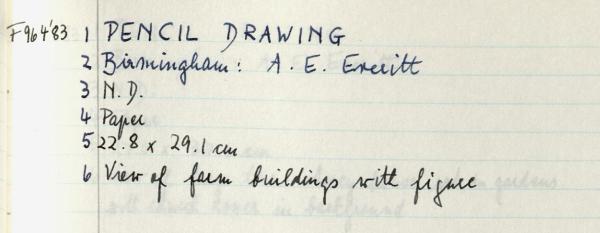 F964'83 1 PENCIL DRAWING
2 Birmingham: A. E. Everitt
3 N.D.
4 Paper
5 22.8 x 29.1 cm
6 View of farm buildings with figure